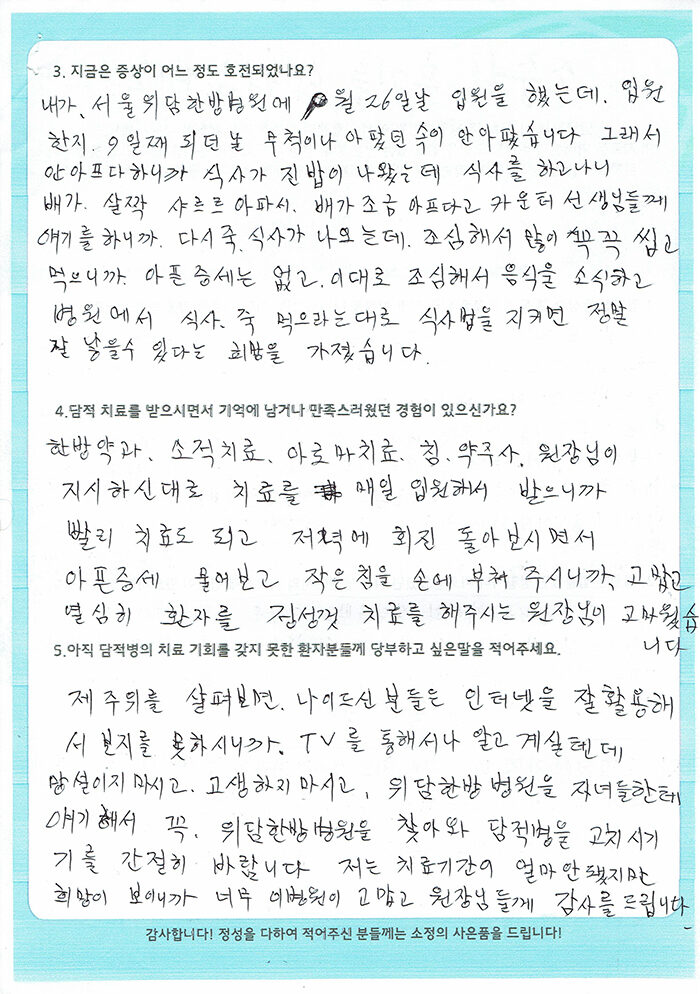 3. 지금은 증상이 어느 정도 호전되었나요?
내가, 서울위담한방병원에 월 26일날 입원을 했는데. 입원
한지. 9일째 되던 날 무척이나 아팠던 속이 안아팠습니다 그래서
안아프다하니까 식사가 진밥이 나왔는데 식사를 하고나니
배가. 살짝 사르르 아파서. 배가 조금 아프다고 카운터 선생님들께
얘기를 하니까. 다시 죽. 식사가 나오는데. 조심해서 많이 꼭꼭 씹고
먹으니까. 아픈 증세는 없고. 이대로 조심해서 음식을 소식하고
병원에서 식사. 죽 먹으라는대로 식사법을 지키면 정말
잘 낳을수 있다는 희망을 가졌습니다.
4.담적 치료를 받으시면서 기억에 남거나 만족스러웠던 경험이 있으신가요?
한방약과, 소적치료, 아로마치료. 침. 약주사. 원장님이
지시하신대로 치료를 매일 입원해서 받으니까
빨리 치효도 되고 저녁에 회진 돌아보시면서
아픈증세 물어보고 작은 침을 손에 부쳐 주시니까, 고맙고
열심히 환자를 정성껏 치료를 해주시는 원장님이 고마웠습
니다
5.아직 담적병의 치료 기회를 갖지 못한 환자분들께 당부하고 싶은말을 적어주세요.
제 주위를 살펴보면. 나이드신 분들은 인터넷을 잘활용해
서 보지를 못하시니까. TV를 통해서나 알고 계실텐데
망설이지 마시고. 고생하지 마시고, 위담한방병원을 자녀들한테
얘기해서 꼭. 위담한방병원을 찾아와 담적병을 고치시기
기를 간절히 바랍니다 저는 치료기간이 얼마 안됐지만
희망이 보이니까 너무 이병원이 고맙고 원장님들께 감사를 드립니다
감사합니다! 정성을 다하여 적어주신 분들께는 소정의 사은품을 드립니다!